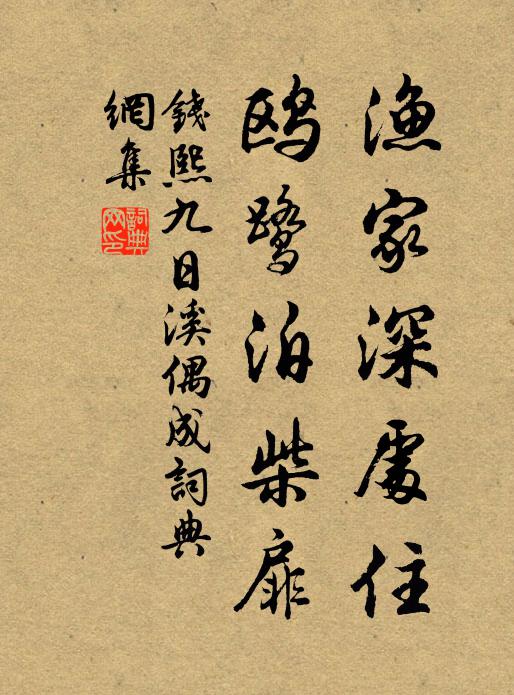 漁家深處住
鷗鷺泊柴扉
錢熙九日溪偶成詞典
網集
詞典
网印